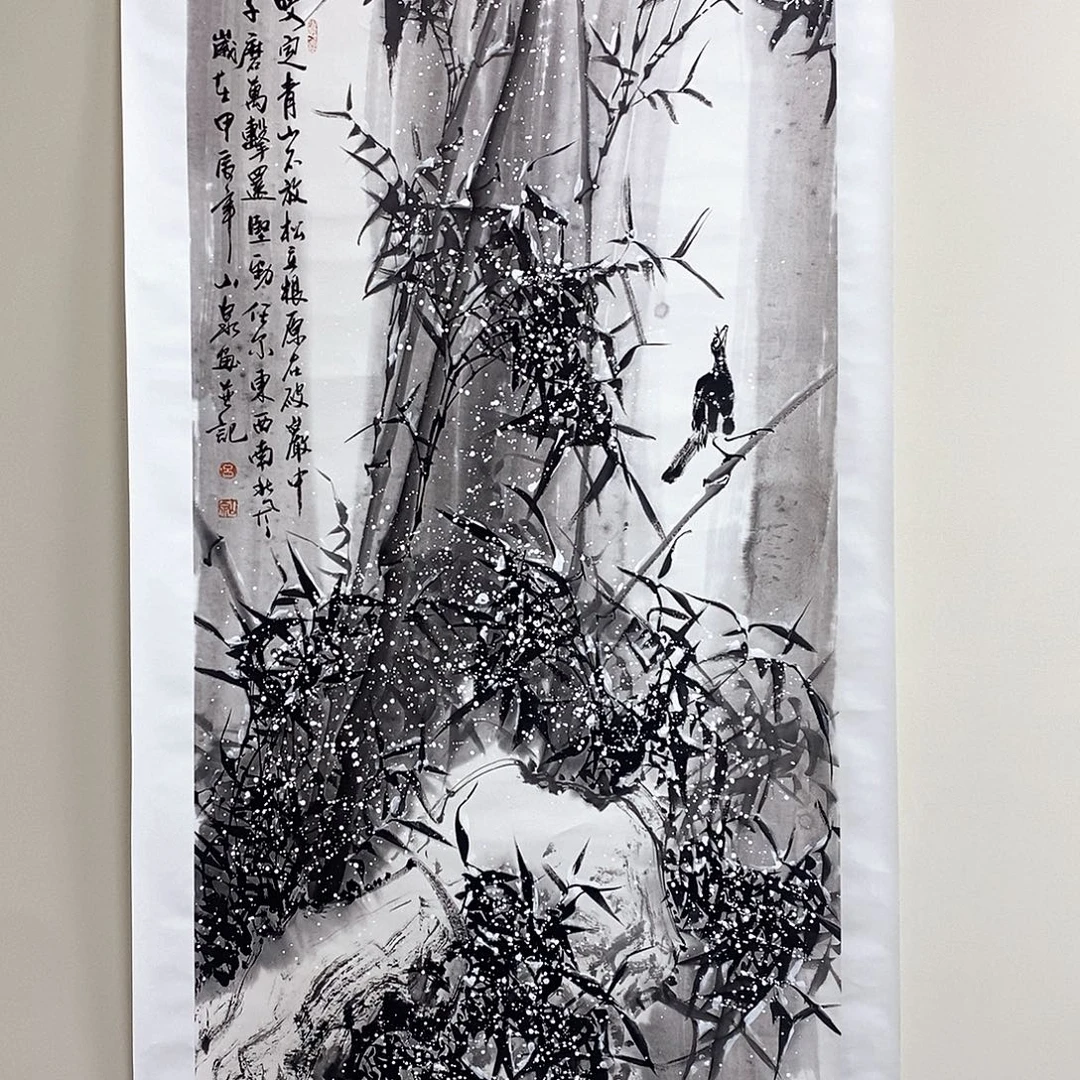 咬定青山不放松立根原在破巖中
千磨萬擊還堅勁任尔東西南北风
歲在甲辰年山泉画並記